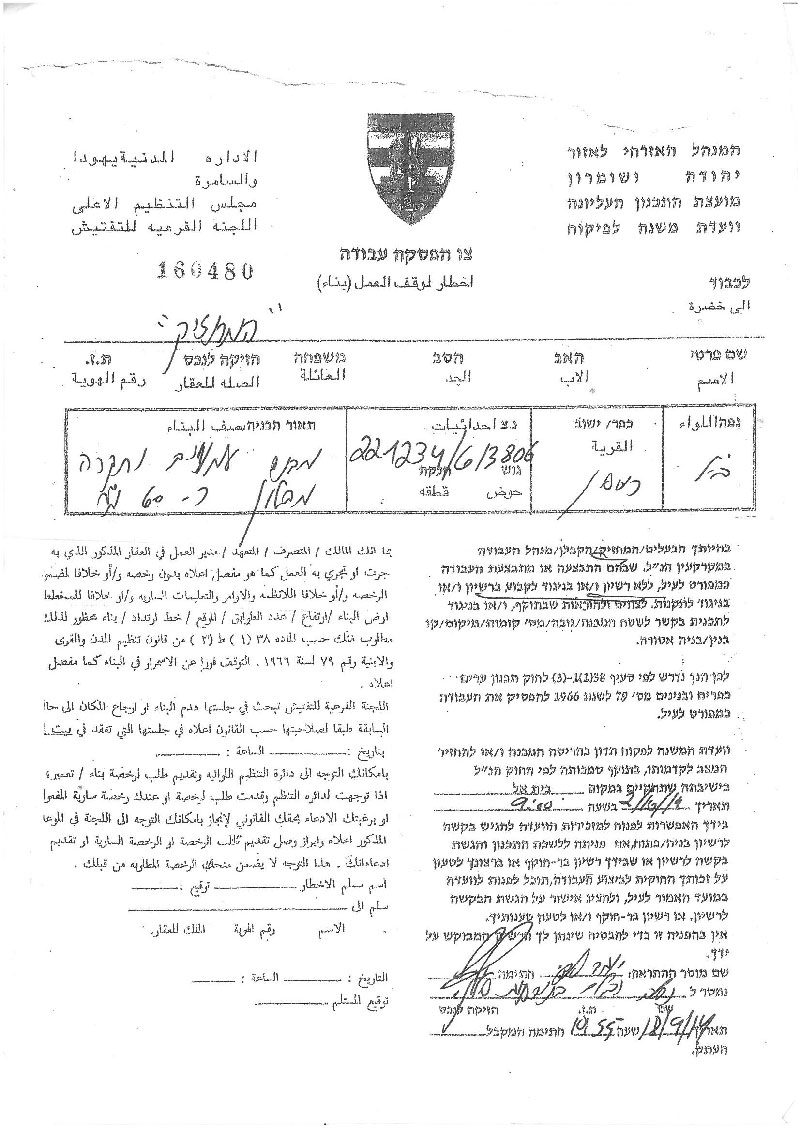 המנהל האזרחי לאזור
יהודה ושומרון
מועצת התכנון העליונה
וועדת משנה לפיקוח
الاداره المدنية يهودا
والسامرة
مجلس التنظيم الاعلى
اللجنه الفرعيه للتفتيش
160480
צו הפסקת עבודה
اخطار لموقف العمل (بناء)
לכבוד
الى حضرة
"המחזיק"
שם פרטי האב הסב משפחה הזיקה לנכס ת.ז.
الاسم الاب الجد العائلة الصله للعقار رقم الهوية
נפה اللواء כפר/ישוב נ.צ احداثيات תאור הבניה وصف البناء
القرية 221234/613806
גוש חלקה
حوض قطعه
מבנה עמודים ותקרה
מבטון כ- 60 מ"ר
בהיותך הבעלים/המחזיק/הקבלן/מנהל העבודה
במקרקעין הנ"ל, שבהם התבצעה או מתבצעת העבודה
כמפורט לעיל, ללא רשיון ו/או בניגוד לקבוע ברשיון ו/או
בניגוד לתקנות, לצווים ולהוראות שבתוקף, ו/או בניגוד
לתכנית בקשר לשטח המבנה/גובה/מס' קומות/מיקום/קו
בנין/בניה אסורה.
לכן הנך נדרש לפי סעיף 38(1)-(3) לחוק תכנון ערים
כפרים ובנינים מס' 79 לשנת 1966 להפסיק את העבודה
כמפורט לעיל.
הועדת המשנה לפקוח תדון בהריסת המבנה ו/או להחזיר
המצב לקדמותו, בתוקף סמכותה לפי החוק הנ"ל
בישיבתה שתתקיים במקום בית אל
תאריך בשעה 9:00
בידך האפשרות לפנות למזכירות הועדה להגיש בקשה
לרשיון בניה
בקשה לרשיון או שבידך רשיון בר-תוקף או ברצונך לטעון
על זכותך החוקית לביצוע העבודה, תוכל לפנות לוועדה
במועד האמור לעיל, ולהציג אישור על הגשת הבקשה
לרשיון, או רשיון בר-תוקף ו/או לטעון טענותיך.
אין בהפניה זו כדי להבטיח שינתן לך הרשיון המבוקש על
ידך.
שם מוסר ההתראה: חתימה
נמסר ל
שם ת.ז. הזיקה לנכס
תאריך 18/9/14 שעה 10:55 חתימת המקבל
העתק.
بما انك المالك / المتصرف / المتعهد / مدير العمل في العقار المذكور الذي به
جرت او تجري به العمل كما هو مفصل اعلاه بدون رخصه و/أو خلافا
الرخصه و/أو خلافا للانظمه والاوامر والتعليمات الساريه و/او خلافا
ارض البناء /ارتفاع / عدد الطوابق / الموقع / خط ارتداد / بناء محظور لذلك
مطلوب منك حسب الماده ٣٨ (١) ط (٣) من قانون تنظيم المدن والقرى
والابنية رقم ٧٩ لسنة ١٩٦٦ . التوقف فورا عن الاستمرار في البناء كما مفصل
اعلاه .
اللجنة الفرعية للتفتيش تبحث في جلستها هدم البناء او ارجاع المكان الى
السابقة طبقا لصلاحيتها حسب القانون اعلاه في جلستها التي تعقد في
بتاريخ : الساعة :
بامكانك التوجه الى دائرة التنظيم اللوائيه وتقديم طلب لرخصة بناء / تعميره
اذا توجهت لدائره التنظيم وقدمت طلب لرخصة او عندك رخصة سارية
او برغبتك الادعاء بحقك القانوني لإنجاز بامكانك التوجه الى اللجنة في
المذكور اعلاه وابراز وصل تقديم طلب الرخصة او الرخصة السارية او تقديم
ادعاءاتك . هذا التوجه لا يضمن منحك الرخصة المطلوبه من قبلك .
اسم مسلم الاخطار : توقيع :
سلم الى
الاسم رقم الهوية الملك للعقار.
التاريخ : الساعة :
توقيع المستلم